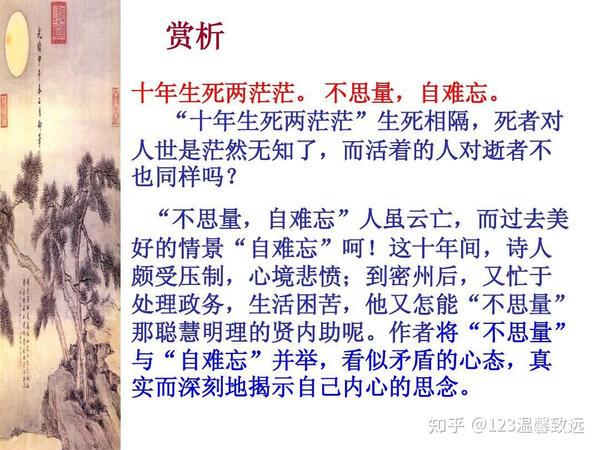 赏析
十年生死两茫茫。 不思量，自难忘。
“十年生死两茫茫”生死相隔，死者对
人世是茫然无知了，而活着的人对逝者不
也同样吗？
“不思量，自难忘”人虽云亡，而过去美
好的情景“自难忘”呵！这十年间，诗人
颇受压制，心境悲愤；到密州后，又忙于
处理政务，生活困苦，他又怎能“不思量”
那聪慧明理的贤内助呢。作者将“不思量”
与“自难忘”并举，看似矛盾的心态，真
实而深刻地揭示自己内心的思念。
知乎 @123温馨致远